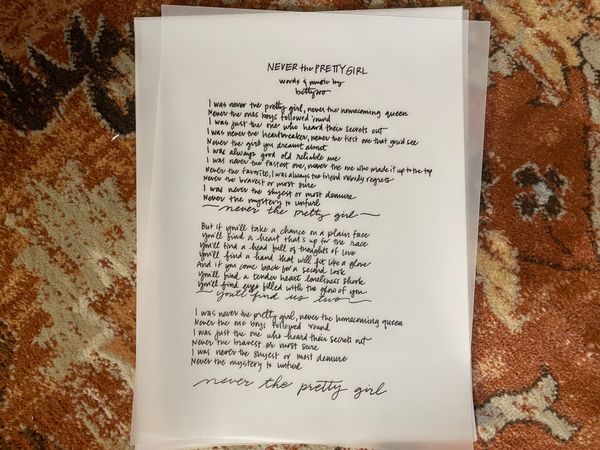 NEVER the PRETTY GIRL
words & music by
bettysoo
I was never the pretty girl, never the homecoming queen
Never the ones boys followed 'round
I was just the one who heard their secrets out
I was never the heartbreaker, never the first one that you'd see
Never the girl you dreamt about
I was always good old reliable me
I was never the fastest one, never the one who made it up to the top
Never the favorite, I was always the friend nobody regrets
Never the bravest or most sure
I was never the shyest or most demure
Never the mystery to unfurl
never the pretty girl
But if you'll take a chance on a plain face
You'll find a heart that's up for the race
You'll find a head full of thoughts of love
You'll find a hand that will fit like a glove
And if you come back for a second look
You'll find a tender heart loneliness shook
You'll find eyes filled with the glow of you
you'll find us two
I was never the pretty girl, never the homecoming queen
Never the one boys followed 'round
I was just the one who heard their secrets out
Never the bravest or most sure
I was never the shyest or most demure
Never the mystery to unfurl
never the pretty girl